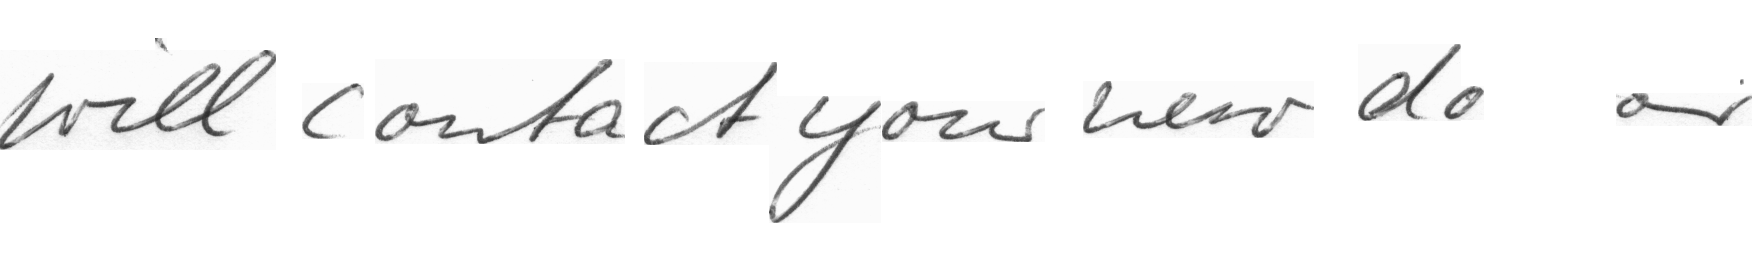 will contact your new do